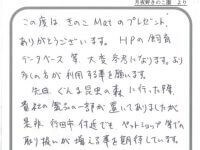 月夜野きのこ園 より
この度は きのこMatのプレゼント、
ありがとうございます。HPの飼育
データベース等 大変参考になります。より
多くの方が利用する事を願います。
先日 ぐんま昆虫の森 に行った際、
貴社の製品の一部が置いてありましたが
是非 行田市付近でも ペットショップ等での
取り扱いが増える事を期待しています。